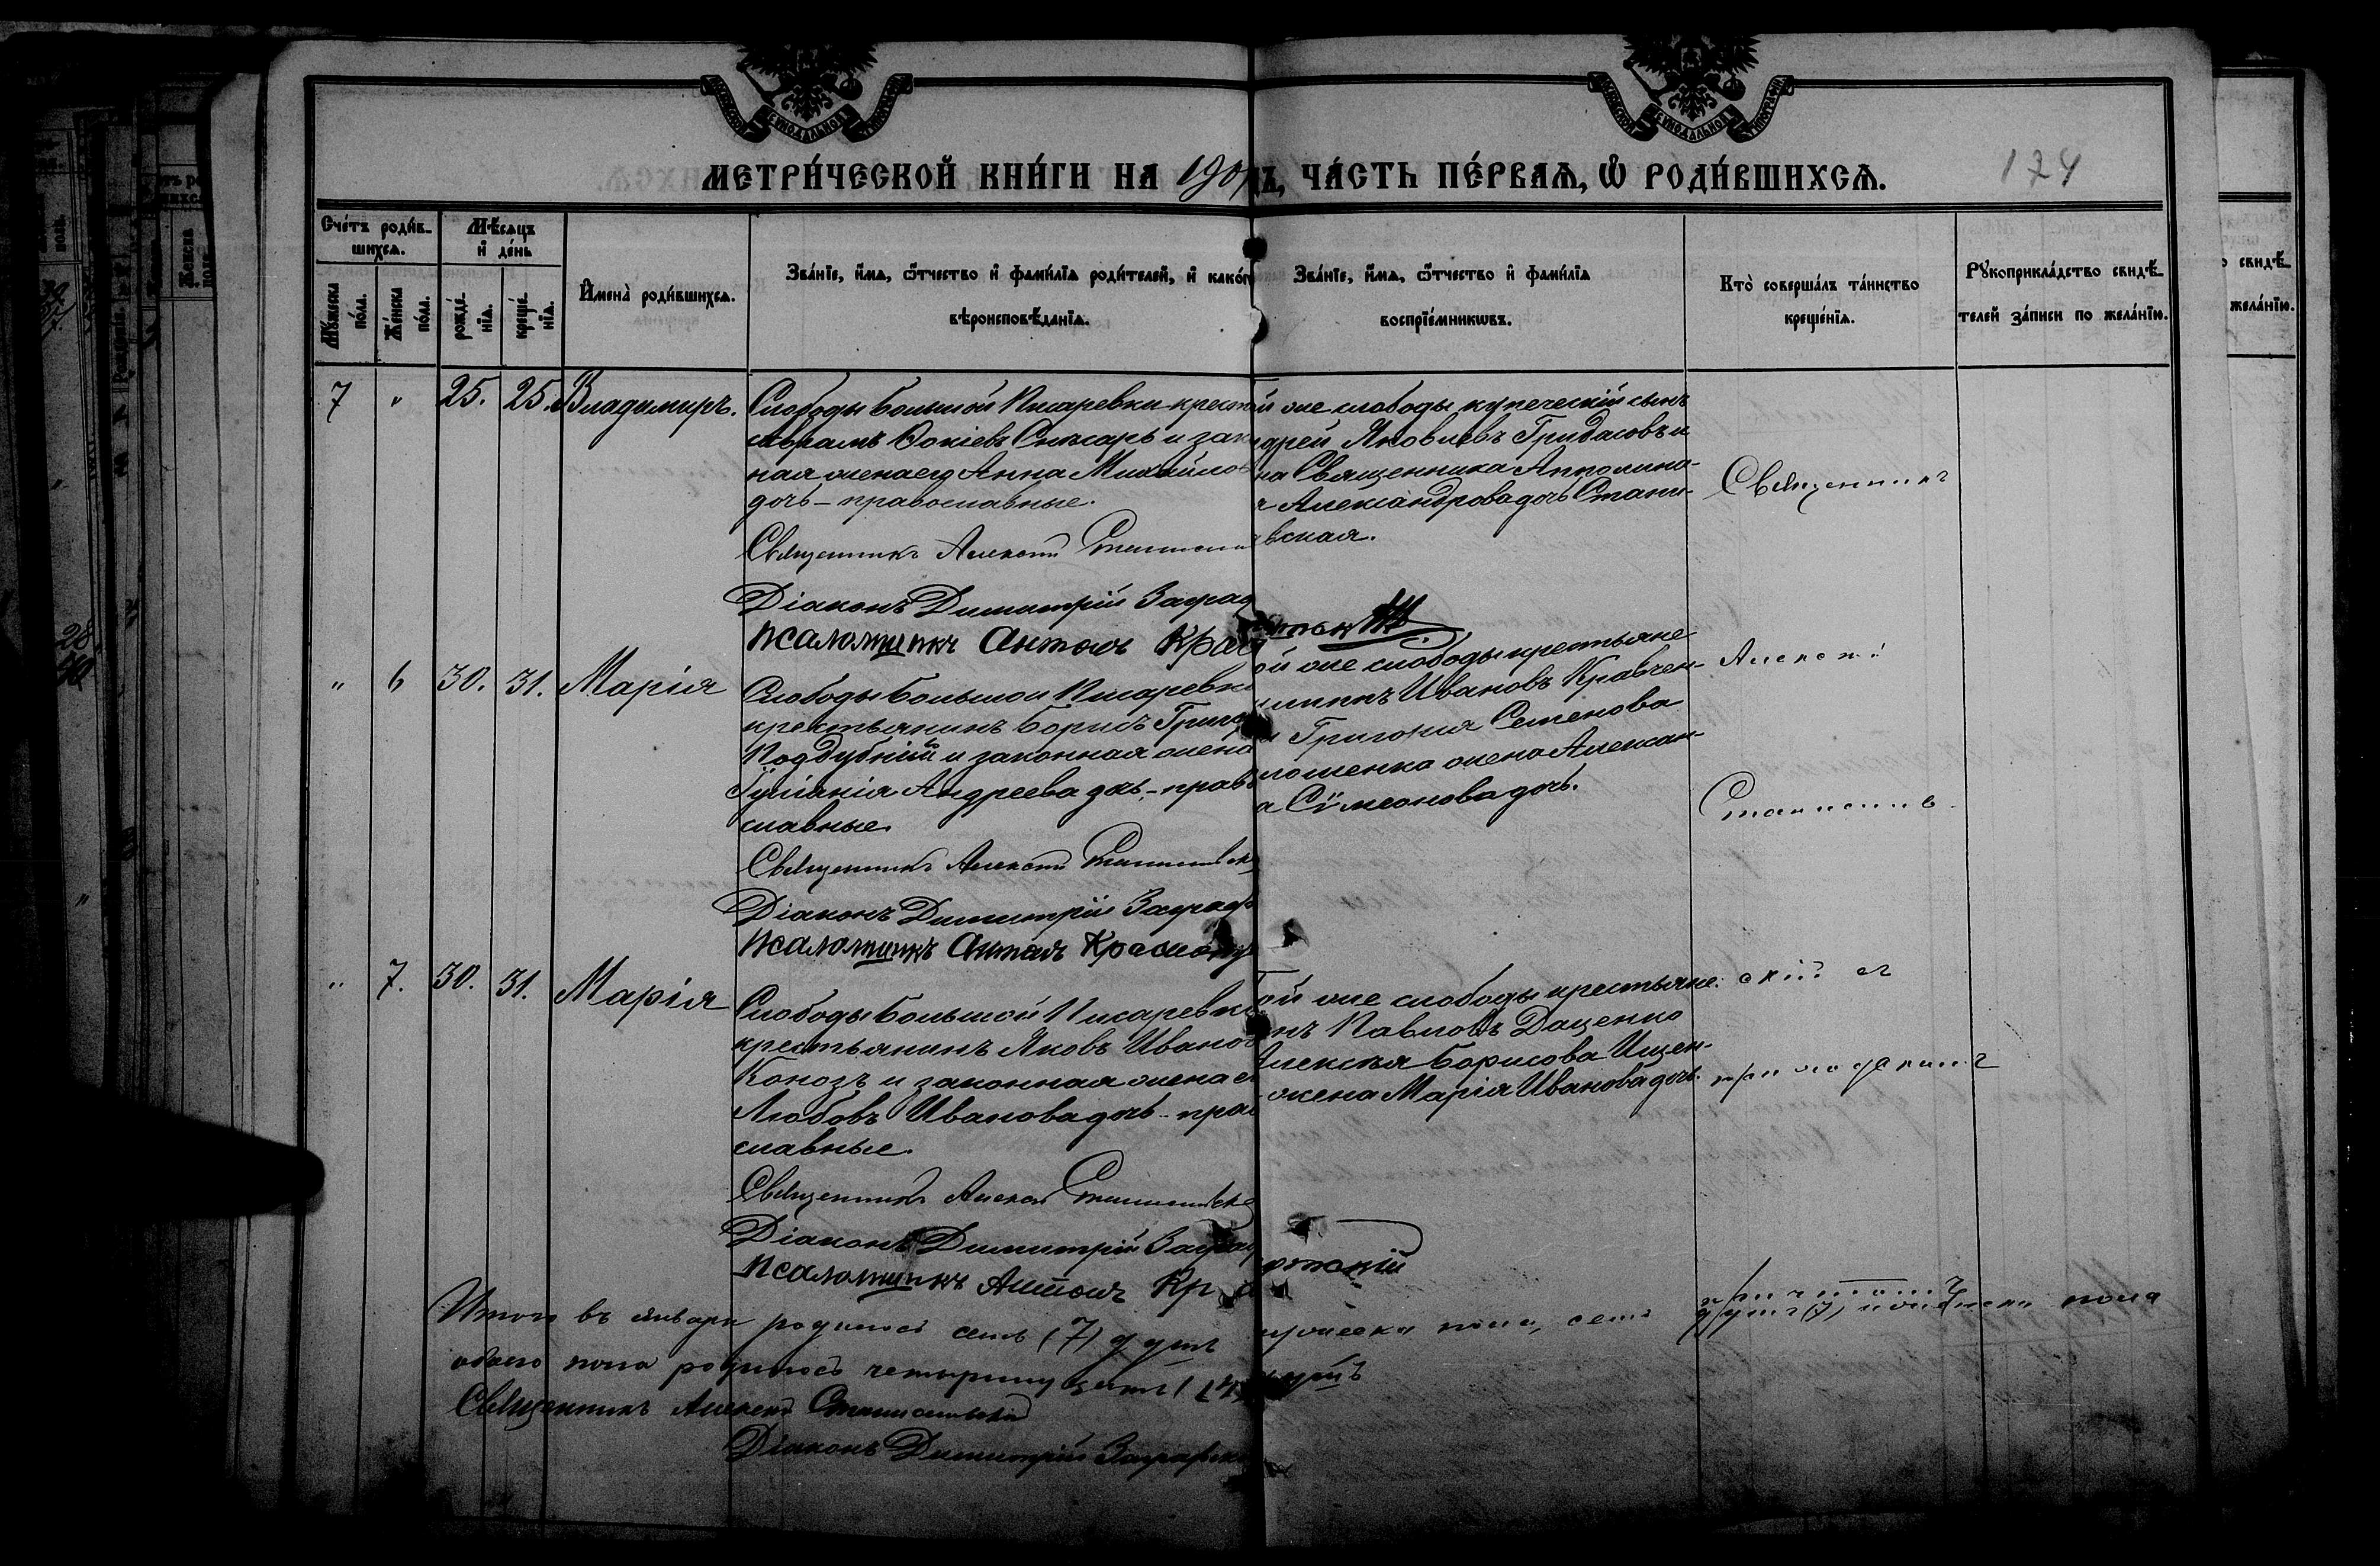 МЕТРИ́ЧЕСКОЙ КНИ́ГИ НА 190
Ъ, ЧА́СТЬ ПЕ́РВАѦ, Ѿ РОДИ́ВШИХСѦ.
174
Сче́тъ роди́в-
шихсѧ.
Мꙋ́жеска
по́ла.
Же́нска
по́ла.
Мѣ́сѧцъ
и҆ де́нь
рожде́-
нїѧ.
креще́-
нїѧ.
И҆мена̀ роди́вшихсѧ.
Зва́нїе, и҆́мѧ, ѻ҆́тчество и҆ фами́лїѧ роди́телей, и҆ како́г
вѣроисповѣ́данїѧ.
Зва́нїе, и҆́мѧ, ѻ҆́тчество и҆ фами́лїѧ
воспрїе́мникѡвъ.
Кто̀ соверша́лъ та́инство
креще́нїѧ.
Рꙋкоприкла́дство свидѣ́-
телей за́писи по жела́нїю.
7 " 25. 25. Владимиръ.
Слободы Большой Писаревки крест
Аврамъ Фокіевъ Снѣсарь и зак
ная жена его Анна Михайлов
дочь – православные.
Священникъ Алексій
Діаконъ Димитрій Заграф
Псаломщикъ Антонъ Кра
ой же слободы купеческій сынъ
дрей Яковлевъ Гридасовъ и
на Священника Апполина-
я Александрова дочь Стани-
вская.
Священникъ
" 6 30. 31. Марія
Слободы Большой Писаревки
крестьянинъ Борисъ Григо
Поддубній и законная жена
Іуліанія Андреева дочь – право
славные.
Священникъ Алексій
Діаконъ Димитрій Заграф
Псаломщикъ Антонъ Краснок
ой же слободы крестьяне
липпъ Ивановъ Кравчен-
и Григорія Семенова
лошенка жена Алексан-
а Сѵмеонова дочь.
Алексій
Станислав-
" 7. 30. 31. Марія
Слободы Большой Писаревки
крестьянинъ Яковъ Ивано
Конозъ и законная жена е
Любовь Иванова дочь – прав
славные.
Священникъ Алексій
Діаконъ Димитрій Заграф
Псаломщикъ Антонъ Кр
ой же слободы крестьяне
нъ Павловъ Даценко
Алексія Борисова Ищен-
жена Марія Иванова дочь.
скій съ
причтомъ
Итого въ январѣ родилось семь (7) душъ мужеска пола, семь душъ (7) женска пола
обоего пола родилось четырнадцать (14) душъ
Священникъ Алексій
Діаконъ Димитрій Заграфск